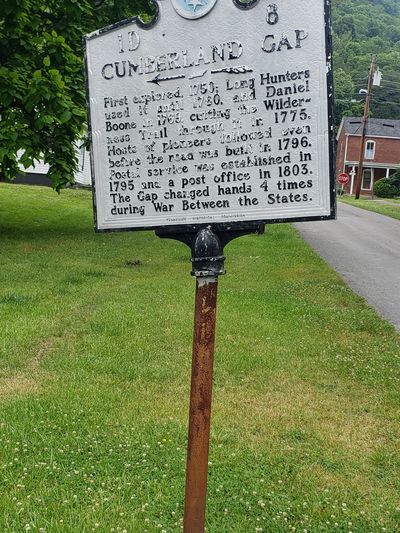 1D 8
CUMBERLAND GAP
First explored, 1750; Long Hunters
used it until 1760, and Daniel
Boone in 1769, cutting the Wilder-
ness Trail through it in 1775.
Hosts of pioneers followed even
before the road was built in 1796.
Postal service was established in
1795 and a post office in 1803.
The Gap changed hands 4 times
during War Between the States.
STOP